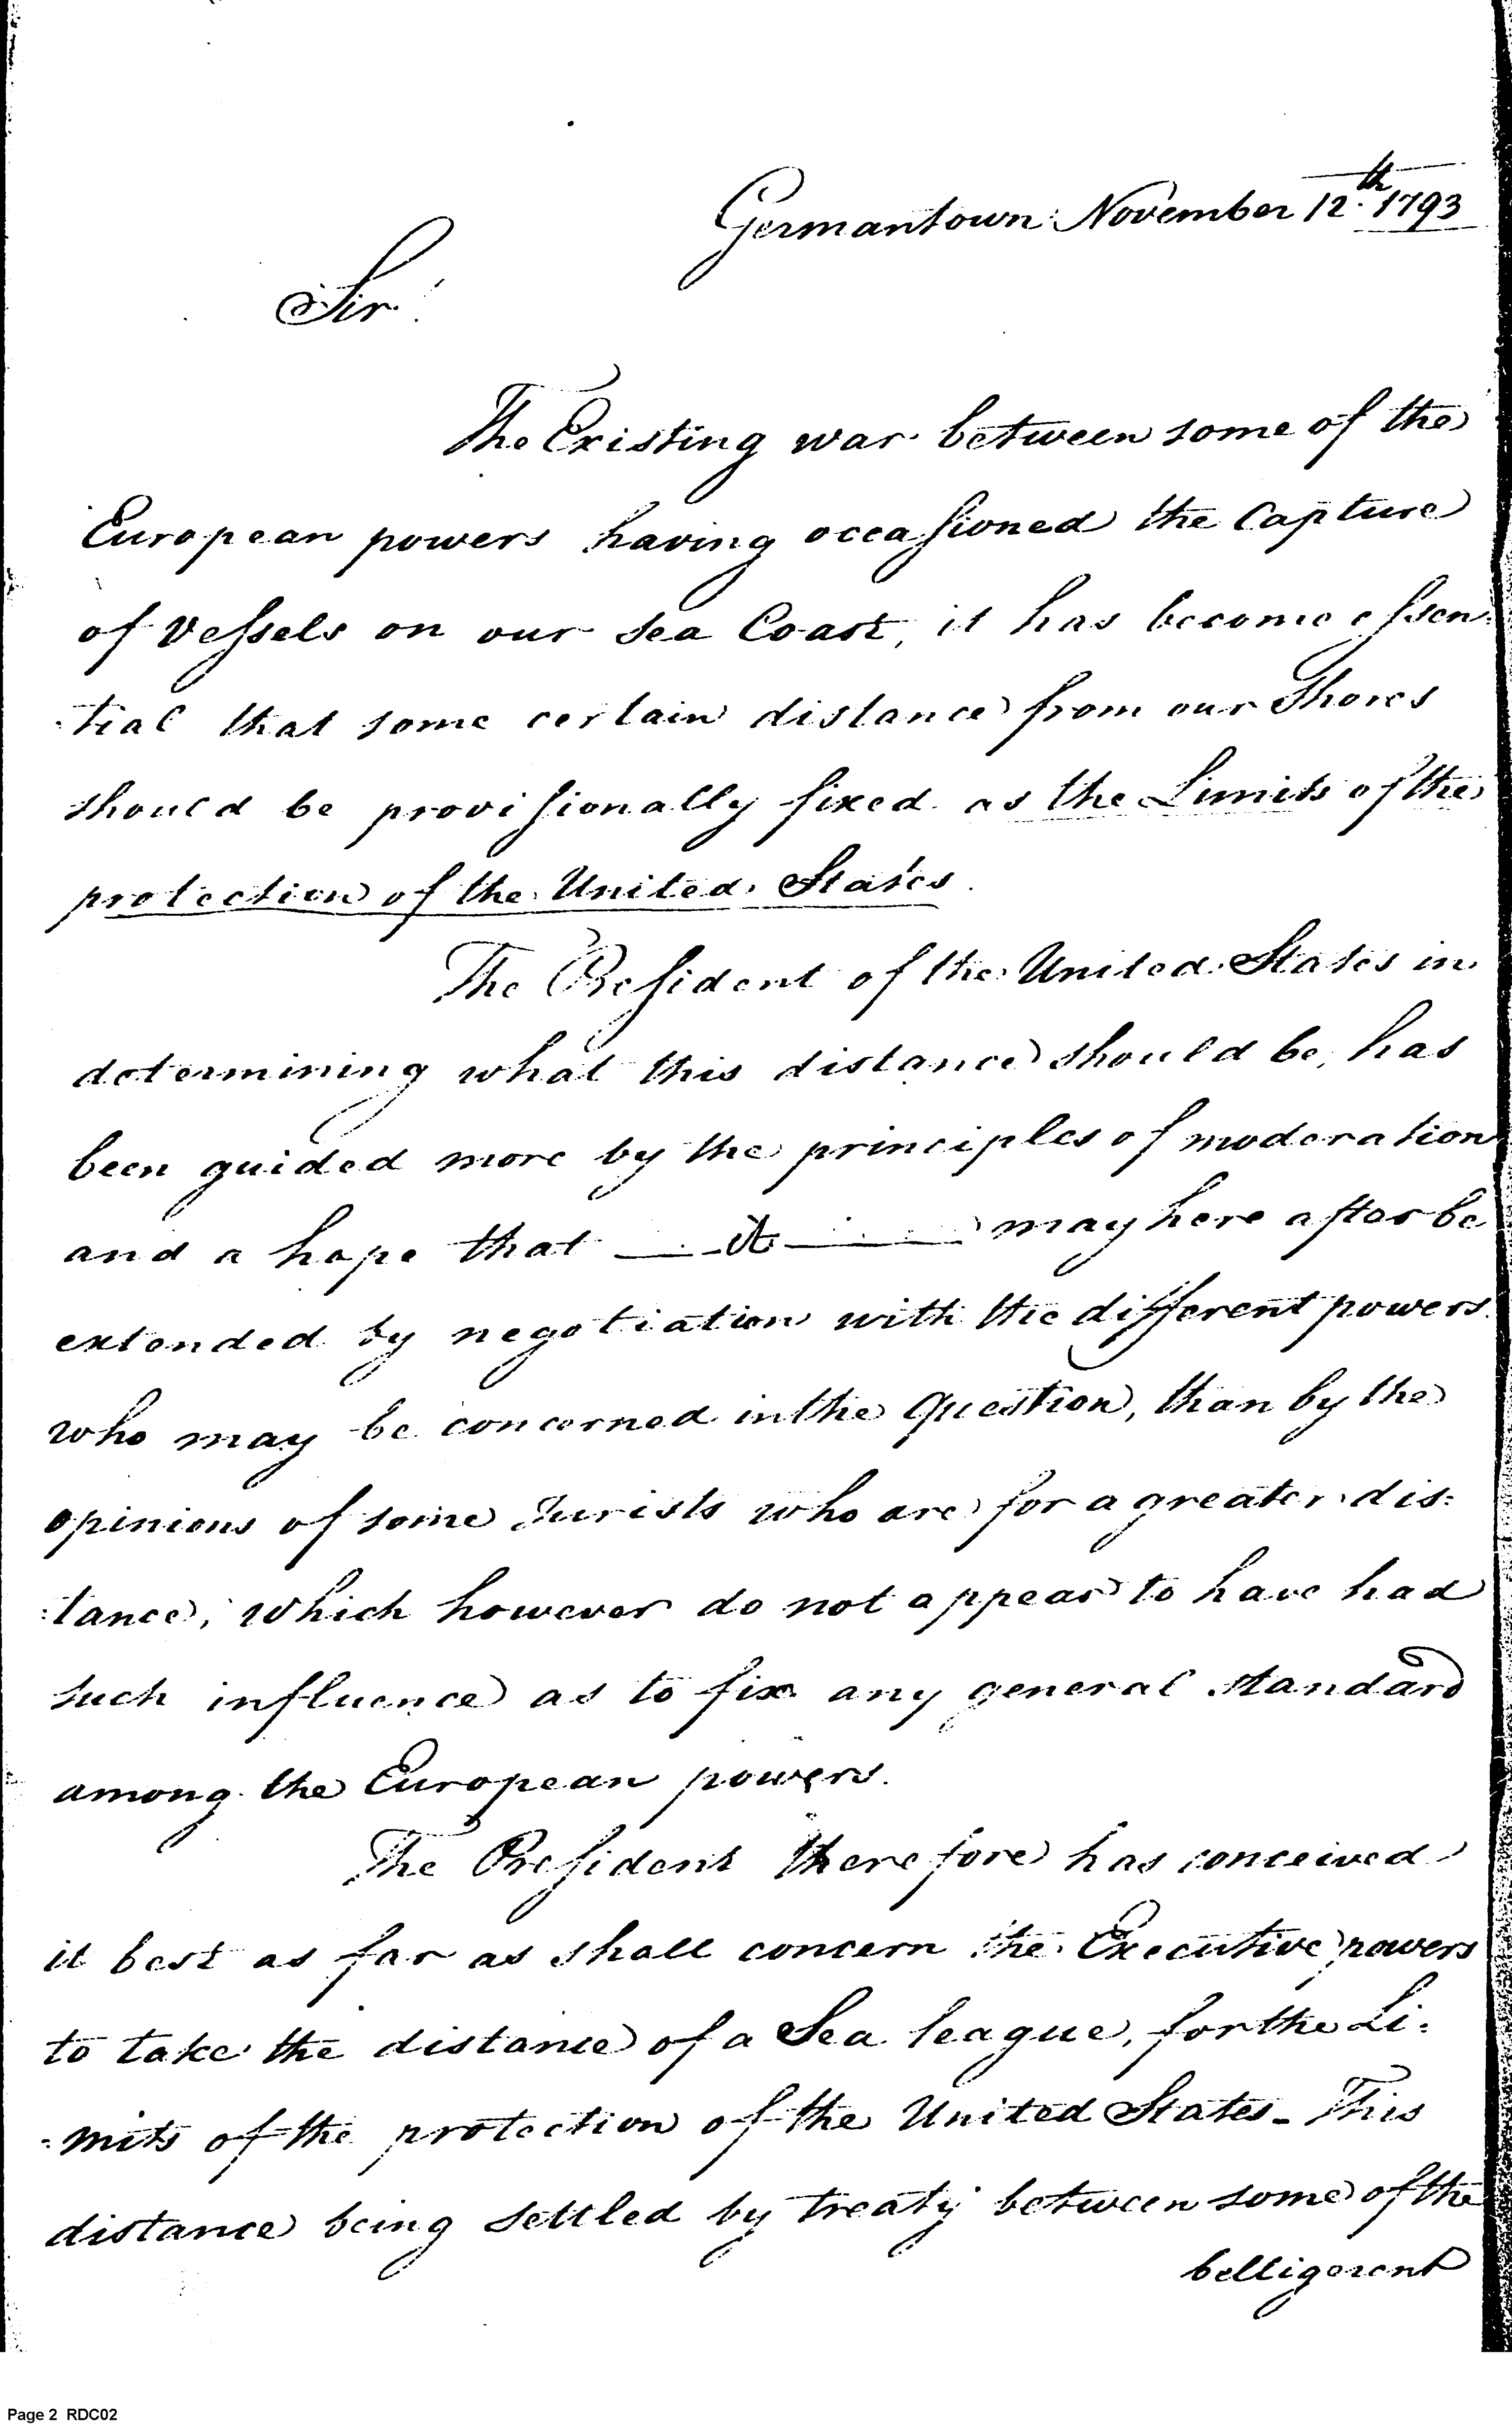 Germantown November 12.th 1793
Sir!
The Existing war between some of the
European powers having occassioned the Capture
of Vessels on our sea Coast, it has become essen-
-tial that some certain distance from our Shores
should be provisionally fixed as the Limits of the
protection of the United States.
The President of the United States in
determining what this distance should be, has
been guided more by the principles of moderation
and a hope that it may here after be
extended by negotiation with the different powers
who may be concerned in the Question, than by the
opinions of some Jurists who are for a greater dis=
=tance, which however do not appear to have had
such influence as to fix any general standard
among the European powers.
The President therefore has conceived
it best as far as shall concern the Executive powers
to take the distance of a Sea league, for the Li=
=mits of the protection of the United States_ This
distance being settled by treaty between some of the
belligerent
Page 2 RDC02